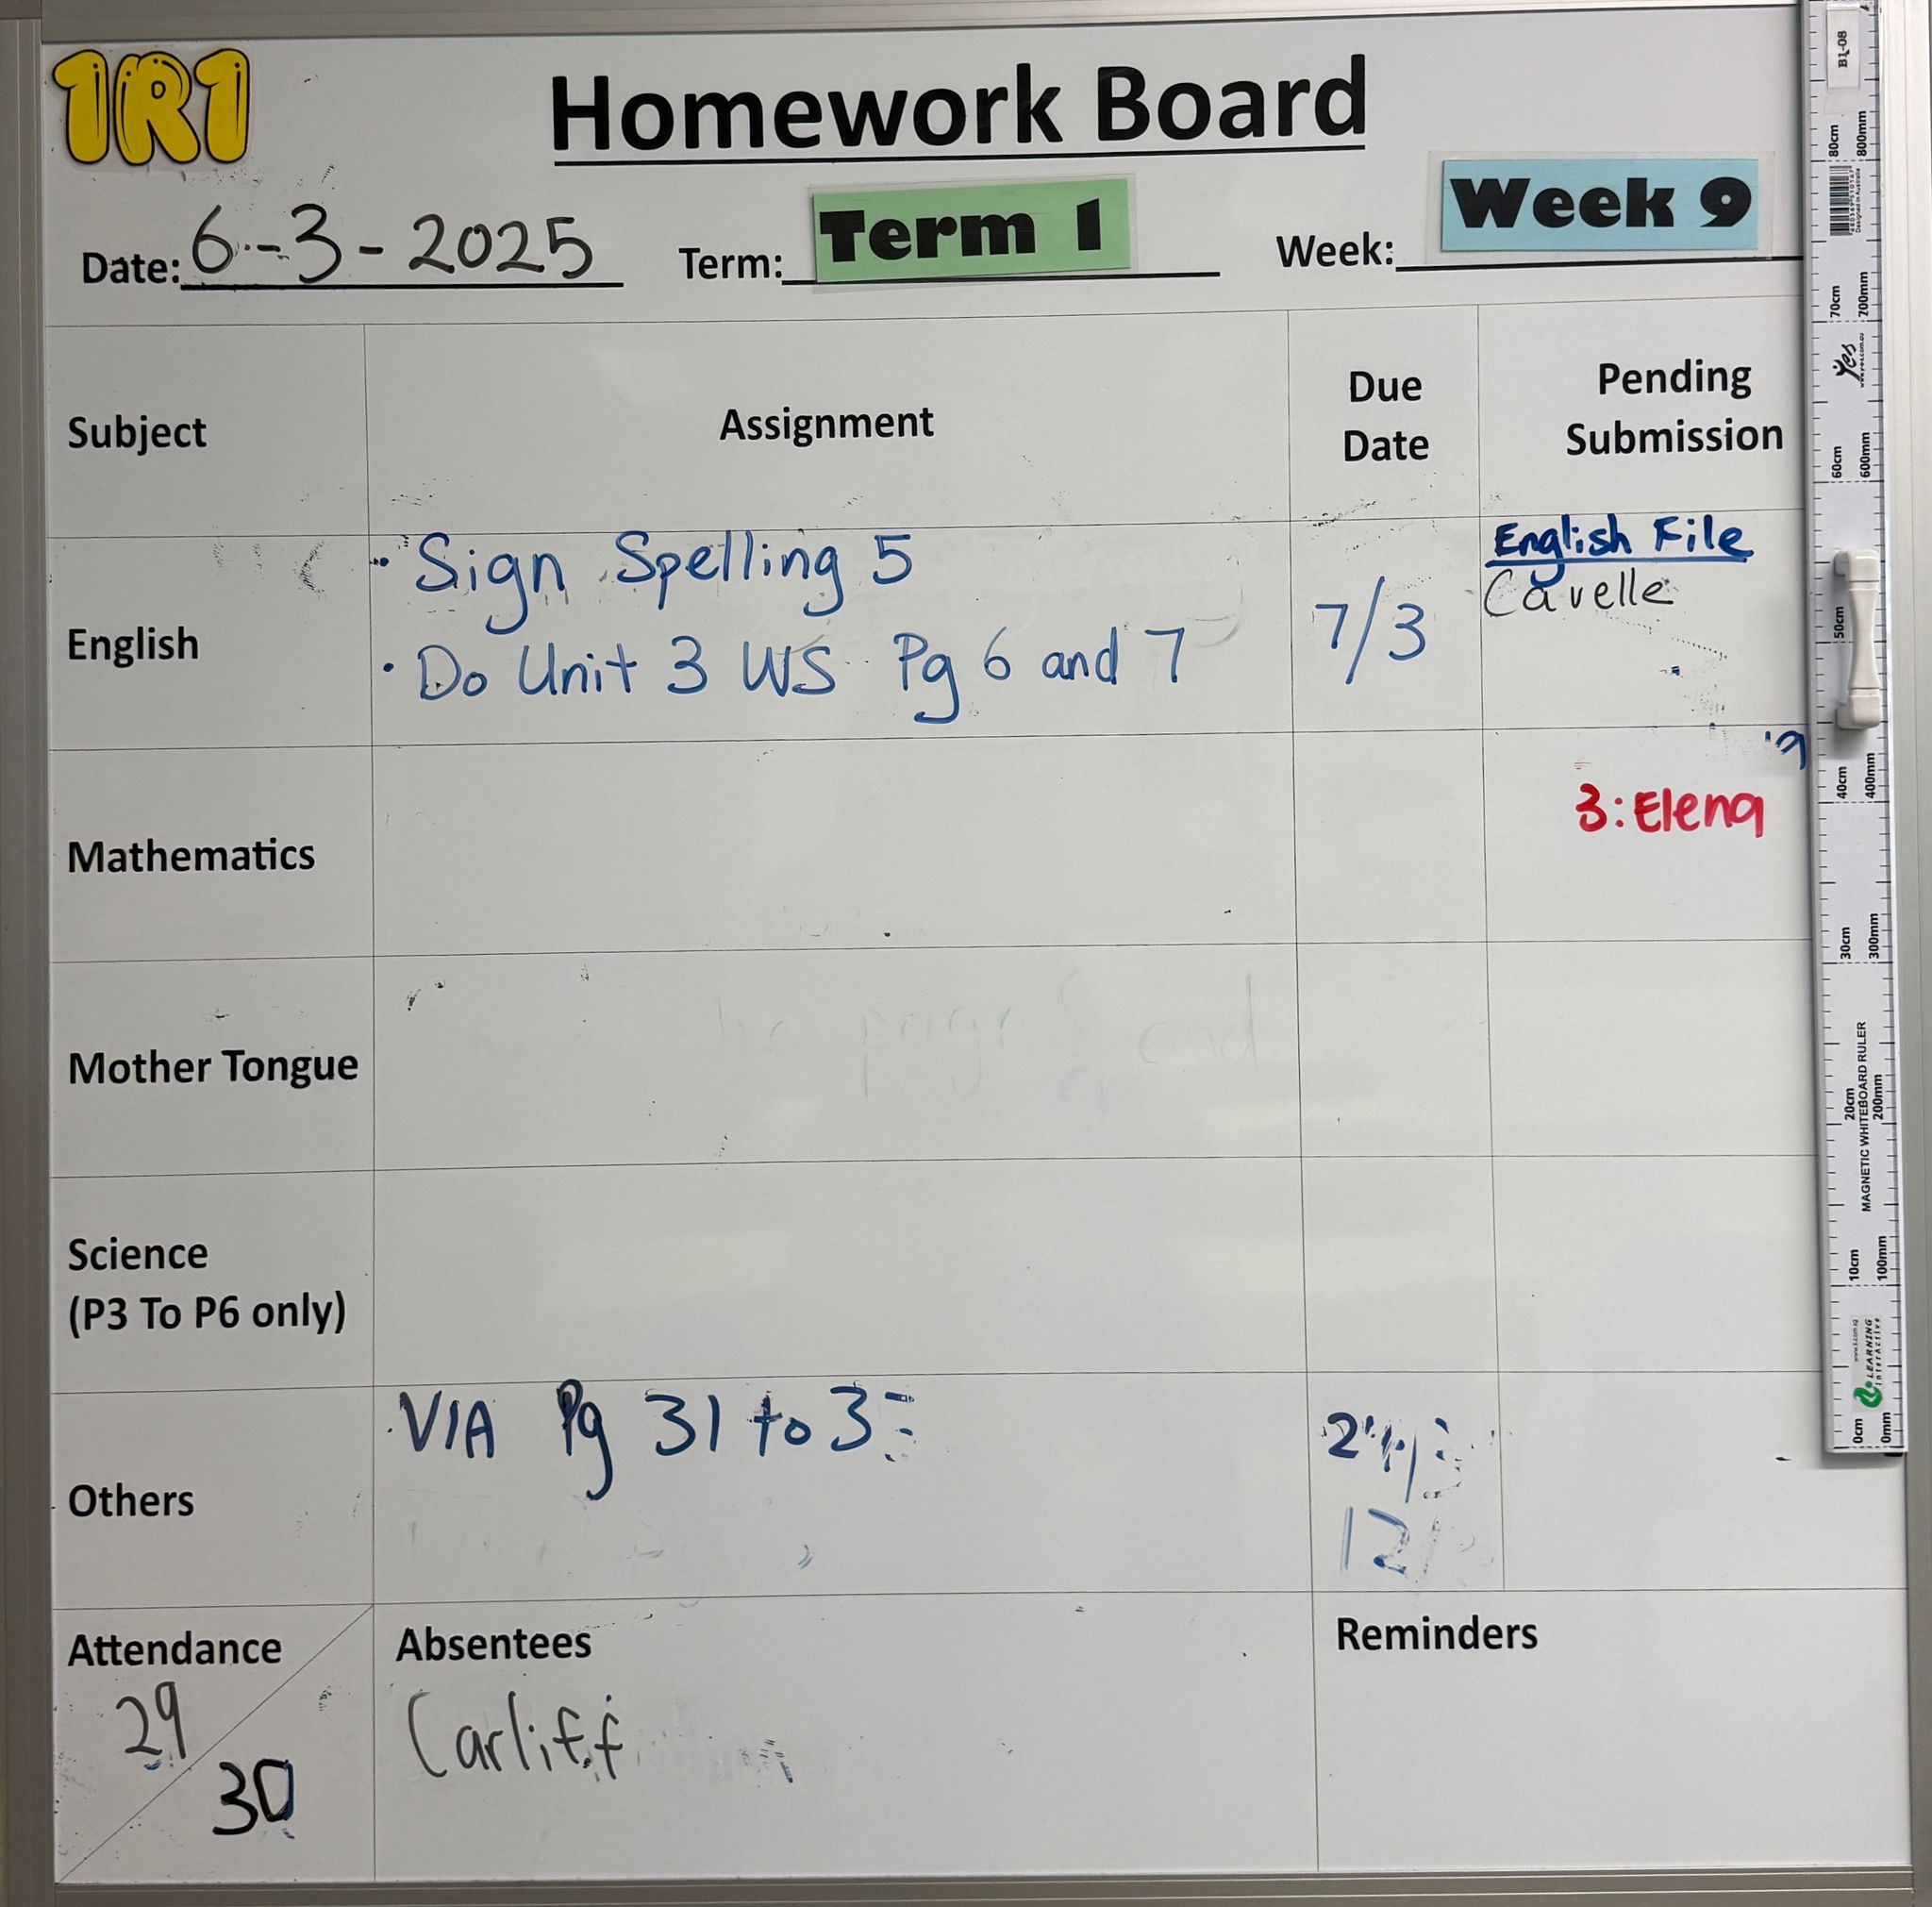 1R1
Homework Board
Date: 6-3-2025 Term: Term 1 Week: Week 9
Subject Assignment Due Date Pending Submission
English
· Sign Spelling 5
· Do Unit 3 WS Pg 6 and 7
7/3
English File
Cavelle
Mathematics
3: Elena
Mother Tongue
Science
(P3 To P6 only)
Others
· VIA Pg 31 to
12/
Attendance
29
30
Absentees
Carliff
Reminders
B1-08
80cm 800mm
70cm 700mm
Yes
60cm 600mm
50cm
40cm 400mm
30cm 300mm
20cm 200mm
MAGNETIC WHITEBOARD RULER
10cm 100mm
LEARNING
InterActive
0cm 0mm